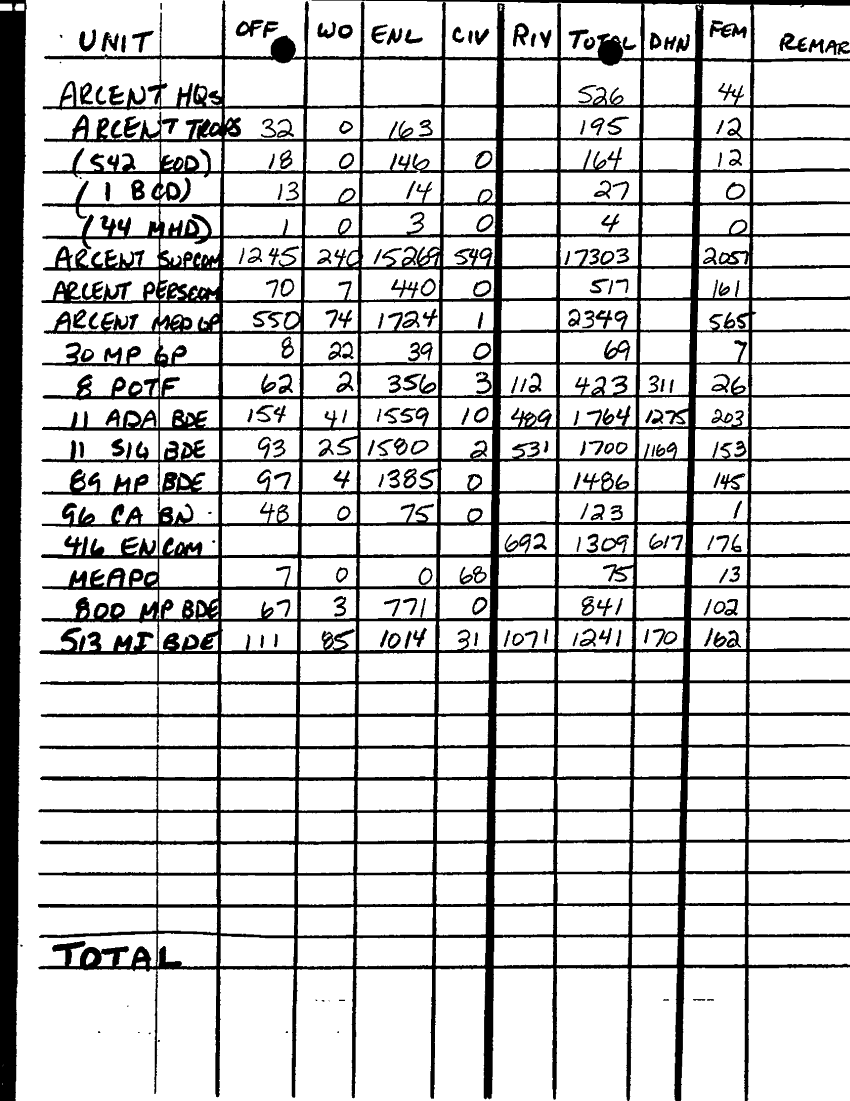 UNIT OFF WO ENL CIV RIY TOTAL DHN FEM REMAR
ARCENT HQs 526 44
ARCENT TROPS 32 0 163 195 12
(542 EOD) 18 0 146 0 164 12
(1 BCD) 13 0 14 0 27 0
(44 MHD) 1 0 3 0 4 0
ARCENT SUPCOM 1245 240 15269 549 17303 2057
ARCENT PERSCOM 70 7 440 0 517 161
ARCENT MED GP 550 74 1724 1 2349 565
30 MP GP 8 22 39 0 69 7
8 POTF 62 2 356 3 112 423 311 26
11 ADA BDE 154 41 1559 10 489 1764 1275 203
11 SIG BDE 93 25 1580 2 531 1700 1169 153
89 MP BDE 97 4 1385 0 1486 145
96 CA BN 48 0 75 0 123 1
416 ENCOM 692 1309 617 176
MEAPO 7 0 0 68 75 13
800 MP BDE 67 3 771 0 841 102
513 MI BDE 111 85 1014 31 1071 1241 170 162
TOTAL